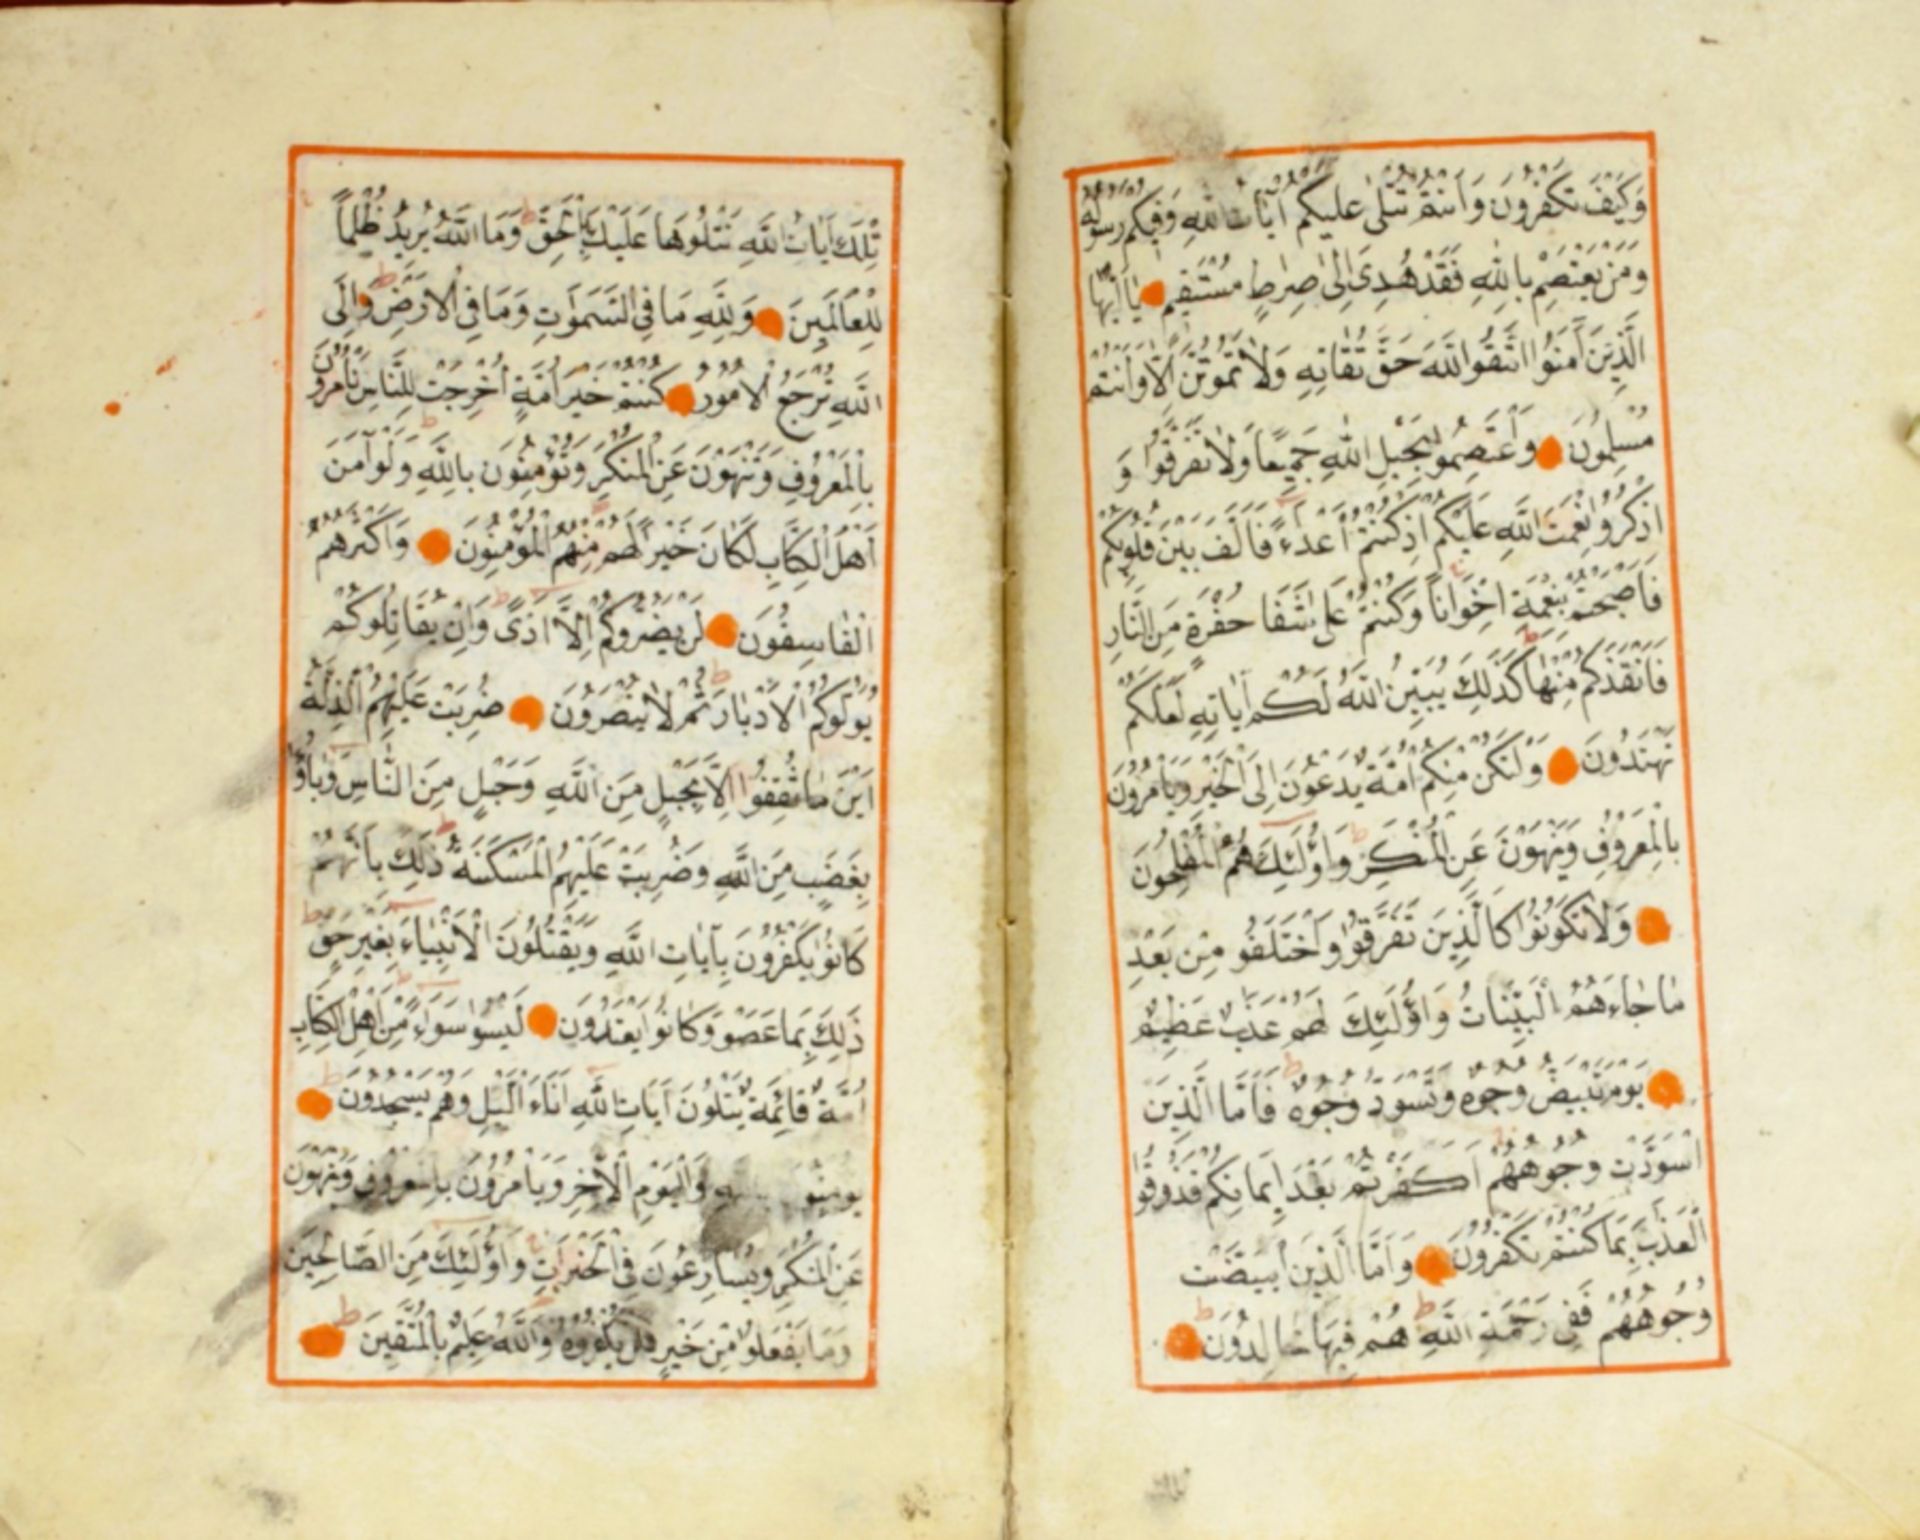 وَكَيْفَ تَكْفُرُونَ وَاَنْتُمْ تُتْلٰى عَلَيْكُمْ اٰيَاتُ اللّٰهِ وَفِيكُمْ رَسُولُهُ
وَمَنْ يَعْتَصِمْ بِاللّٰهِ فَقَدْ هُدِىَ اِلٰى صِرَاطٍ مُسْتَقِيمٍ يَا اَيُّهَا
الَّذِينَ اٰمَنُوا اتَّقُوا اللّٰهَ حَقَّ تُقَاتِهِ وَلَا تَمُوتُنَّ اِلَّا وَاَنْتُمْ
مُسْلِمُونَ وَاعْتَصِمُوا بِحَبْلِ اللّٰهِ جَمِيعًا وَلَا تَفَرَّقُوا وَ
اذْكُرُوا نِعْمَتَ اللّٰهِ عَلَيْكُمْ اِذْ كُنْتُمْ اَعْدَاءً فَاَلَّفَ بَيْنَ قُلُوبِكُمْ
فَاَصْبَحْتُمْ بِنِعْمَتِهِ اِخْوَانًا وَكُنْتُمْ عَلٰى شَفَا حُفْرَةٍ مِنَ النَّارِ
فَاَنْقَذَكُمْ مِنْهَا كَذٰلِكَ يُبَيِّنُ اللّٰهُ لَكُمْ اٰيَاتِهِ لَعَلَّكُمْ
تَهْتَدُونَ وَلْتَكُنْ مِنْكُمْ اُمَّةٌ يَدْعُونَ اِلَى الْخَيْرِ وَيَأْمُرُونَ
بِالْمَعْرُوفِ وَيَنْهَوْنَ عَنِ الْمُنْكَرِ وَاُولٰئِكَ هُمُ الْمُفْلِحُونَ
وَلَا تَكُونُوا كَالَّذِينَ تَفَرَّقُوا وَاخْتَلَفُو مِنْ بَعْدِ
مَا جَاءَهُمُ الْبَيِّنَاتُ وَاُولٰئِكَ لَهُمْ عَذَابٌ عَظِيمٌ
يَوْمَ تَبْيَضُّ وُجُوهٌ وَتَسْوَدُّ وُجُوهٌ فَاَمَّا الَّذِينَ
اسْوَدَّتْ وُجُوهُهُمْ اَكَفَرْتُمْ بَعْدَ اِيمَانِكُمْ فَذُوقُوا
الْعَذَابَ بِمَا كُنْتُمْ تَكْفُرُونَ وَاَمَّا الَّذِينَ ابْيَضَّتْ
وُجُوهُهُمْ فَفِى رَحْمَةِ اللّٰهِ هُمْ فِيهَا خَالِدُونَ
تِلْكَ اٰيَاتُ اللّٰهِ نَتْلُوهَا عَلَيْكَ بِالْحَقِّ وَمَا اللّٰهُ يُرِيدُ ظُلْمًا
لِلْعَالَمِينَ وَلِلّٰهِ مَا فِى السَّمٰوَاتِ وَمَا فِى الْاَرْضِ وَاِلَى
اللّٰهِ تُرْجَعُ الْاُمُورُ كُنْتُمْ خَيْرَ اُمَّةٍ اُخْرِجَتْ لِلنَّاسِ تَأْمُرُونَ
بِالْمَعْرُوفِ وَتَنْهَوْنَ عَنِ الْمُنْكَرِ وَتُؤْمِنُونَ بِاللّٰهِ وَلَوْ اٰمَنَ
اَهْلُ الْكِتَابِ لَكَانَ خَيْرًا لَهُمْ مِنْهُمُ الْمُؤْمِنُونَ وَاَكْثَرُهُمُ
الْفَاسِقُونَ لَنْ يَضُرُّوكُمْ اِلَّا اَذًى وَاِنْ يُقَاتِلُوكُمْ
يُوَلُّوكُمُ الْاَدْبَارَ ثُمَّ لَا يُنْصَرُونَ ضُرِبَتْ عَلَيْهِمُ الذِّلَّةُ
اَيْنَ مَا ثُقِفُوا اِلَّا بِحَبْلٍ مِنَ اللّٰهِ وَحَبْلٍ مِنَ النَّاسِ وَبَاؤُا
بِغَضَبٍ مِنَ اللّٰهِ وَضُرِبَتْ عَلَيْهِمُ الْمَسْكَنَةُ ذٰلِكَ بِاَنَّهُمْ
كَانُوا يَكْفُرُونَ بِاٰيَاتِ اللّٰهِ وَيَقْتُلُونَ الْاَنْبِيَاءَ بِغَيْرِ حَقٍّ
ذٰلِكَ بِمَا عَصَوْ وَكَانُوا يَعْتَدُونَ لَيْسُوا سَوَاءً مِنْ اَهْلِ الْكِتَابِ
اُمَّةٌ قَائِمَةٌ يَتْلُونَ اٰيَاتِ اللّٰهِ اٰنَاءَ الَّيْلِ وَهُمْ يَسْجُدُونَ
يُؤْمِنُونَ وَالْيَوْمِ الْاٰخِرِ وَيَأْمُرُونَ بِالْمَعْرُوفِ وَيَنْهَوْنَ
عَنِ الْمُنْكَرِ وَيُسَارِعُونَ فِى الْخَيْرَاتِ وَاُولٰئِكَ مِنَ الصَّالِحِينَ
وَمَا يَفْعَلُوا مِنْ خَيْرٍ فَلَنْ يُكْفَرُوهُ وَاللّٰهُ عَلِيمٌ بِالْمُتَّقِينَ